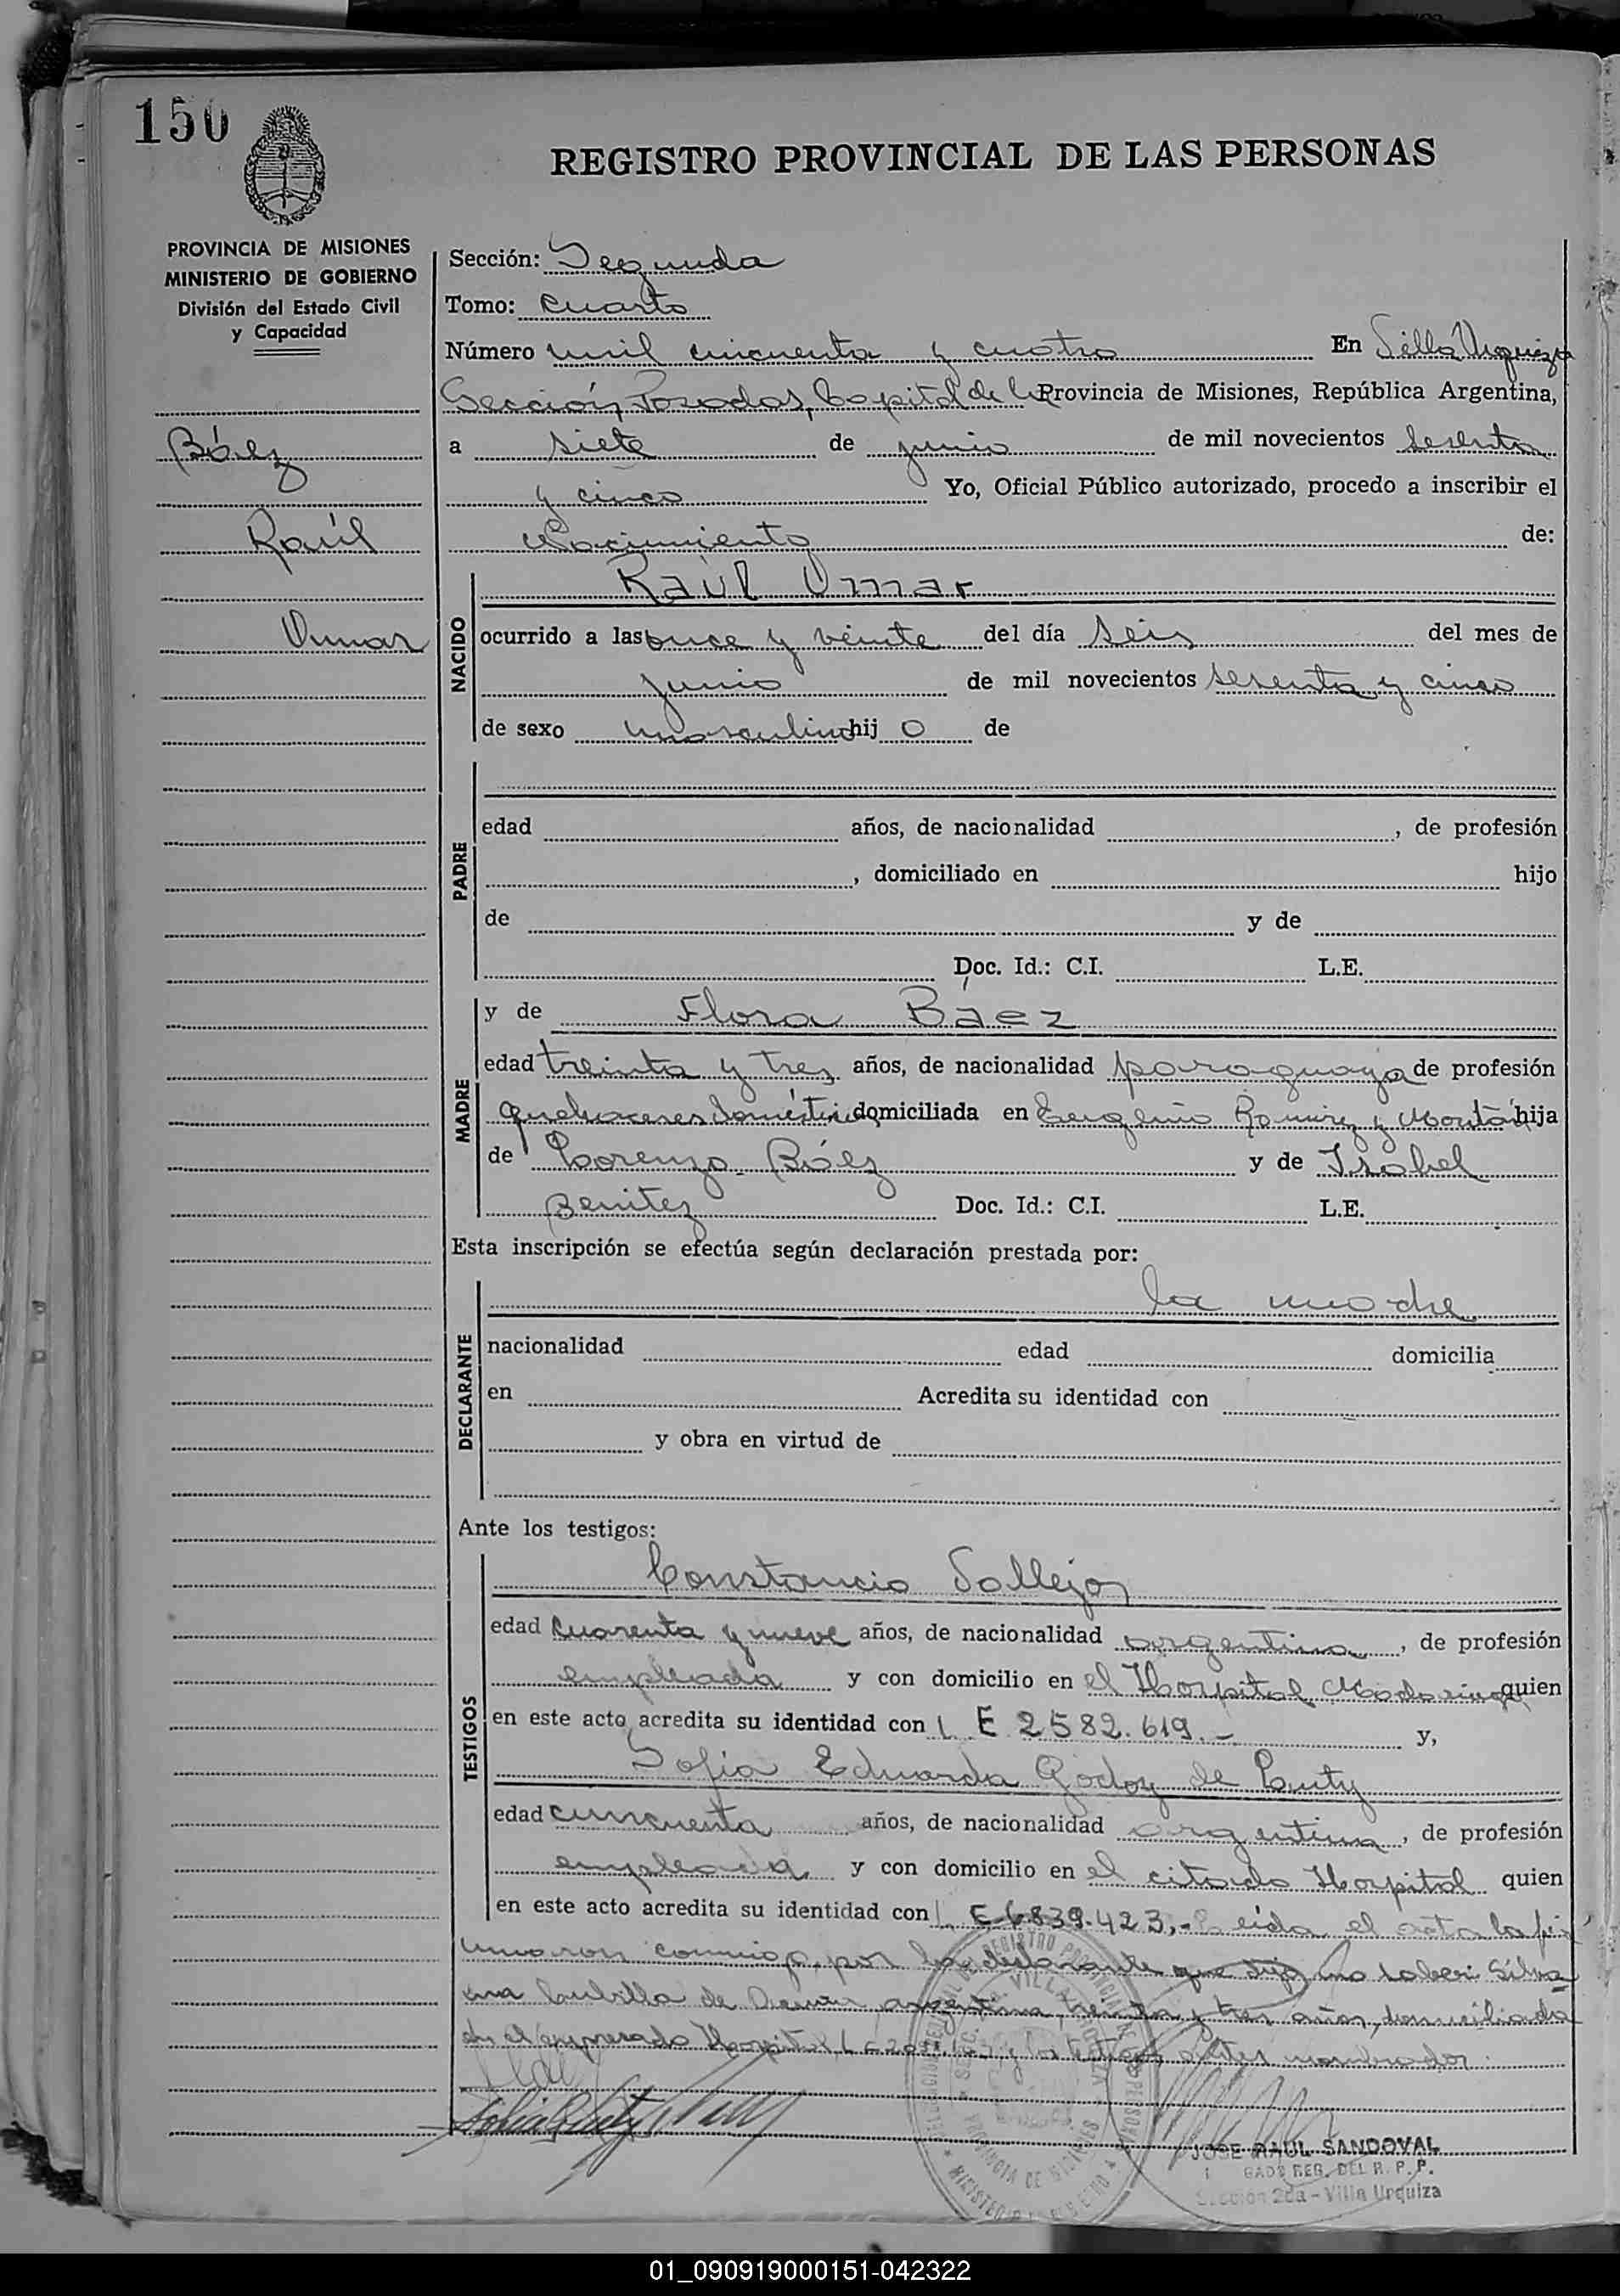 150
REGISTRO PROVINCIAL DE LAS PERSONAS
PROVINCIA DE MISIONES
MINISTERIO DE GOBIERNO
División del Estado Civil
y Capacidad
Báez
Raúl
Omar
Sección: Segunda
Tomo: Cuarto
Número mil cincuenta y cuatro En Villa Urquiza
Sección, Posadas, Capital de la Provincia de Misiones, República Argentina,
a siete de junio de mil novecientos sesenta
y cinco Yo, Oficial Público autorizado, procedo a inscribir el
Nacimiento de:
NACIDO
Raúl Omar
ocurrido a las once y veinte del día seis del mes de
junio de mil novecientos sesenta y cinco
de sexo masculino hij o de
PADRE
edad años, de nacionalidad , de profesión
, domiciliado en hijo
de y de
Doc. Id.: C.I. L.E.
MADRE
y de Flora Báez
edad treinta y tres años, de nacionalidad paraguaya de profesión
quehaceres domésticos domiciliada en Eugenio Ramirez y hija
de Lorenzo Báez y de Isabel
Benitez Doc. Id.: C.I. L.E.
Esta inscripción se efectúa según declaración prestada por:
DECLARANTE
la madre
nacionalidad edad domicilia
en Acredita su identidad con
y obra en virtud de
Ante los testigos:
TESTIGOS
Constancio Vallejos
edad cuarenta y nueve años, de nacionalidad argentina , de profesión
empleada y con domicilio en el Hospital Madariaga quien
en este acto acredita su identidad con L E 2582.619.- y,
Sofia Eduarda Godoy de Cuty
edad cincuenta años, de nacionalidad argentina , de profesión
empleada y con domicilio en el citado Hospital quien
en este acto acredita su identidad con L E 6839.423,- Leida el acta la fir
maron conmigo, por la declarante que dijo no saber Silva
na de argentina, treinta y tres años, domiciliada
en el expresado Hospital L E y los testigos antes nombrados.
JOSE RAUL SANDOVAL
GADO REG. DEL R. P. P.
Sección 2da - Villa Urquiza
01_090919000151-042322